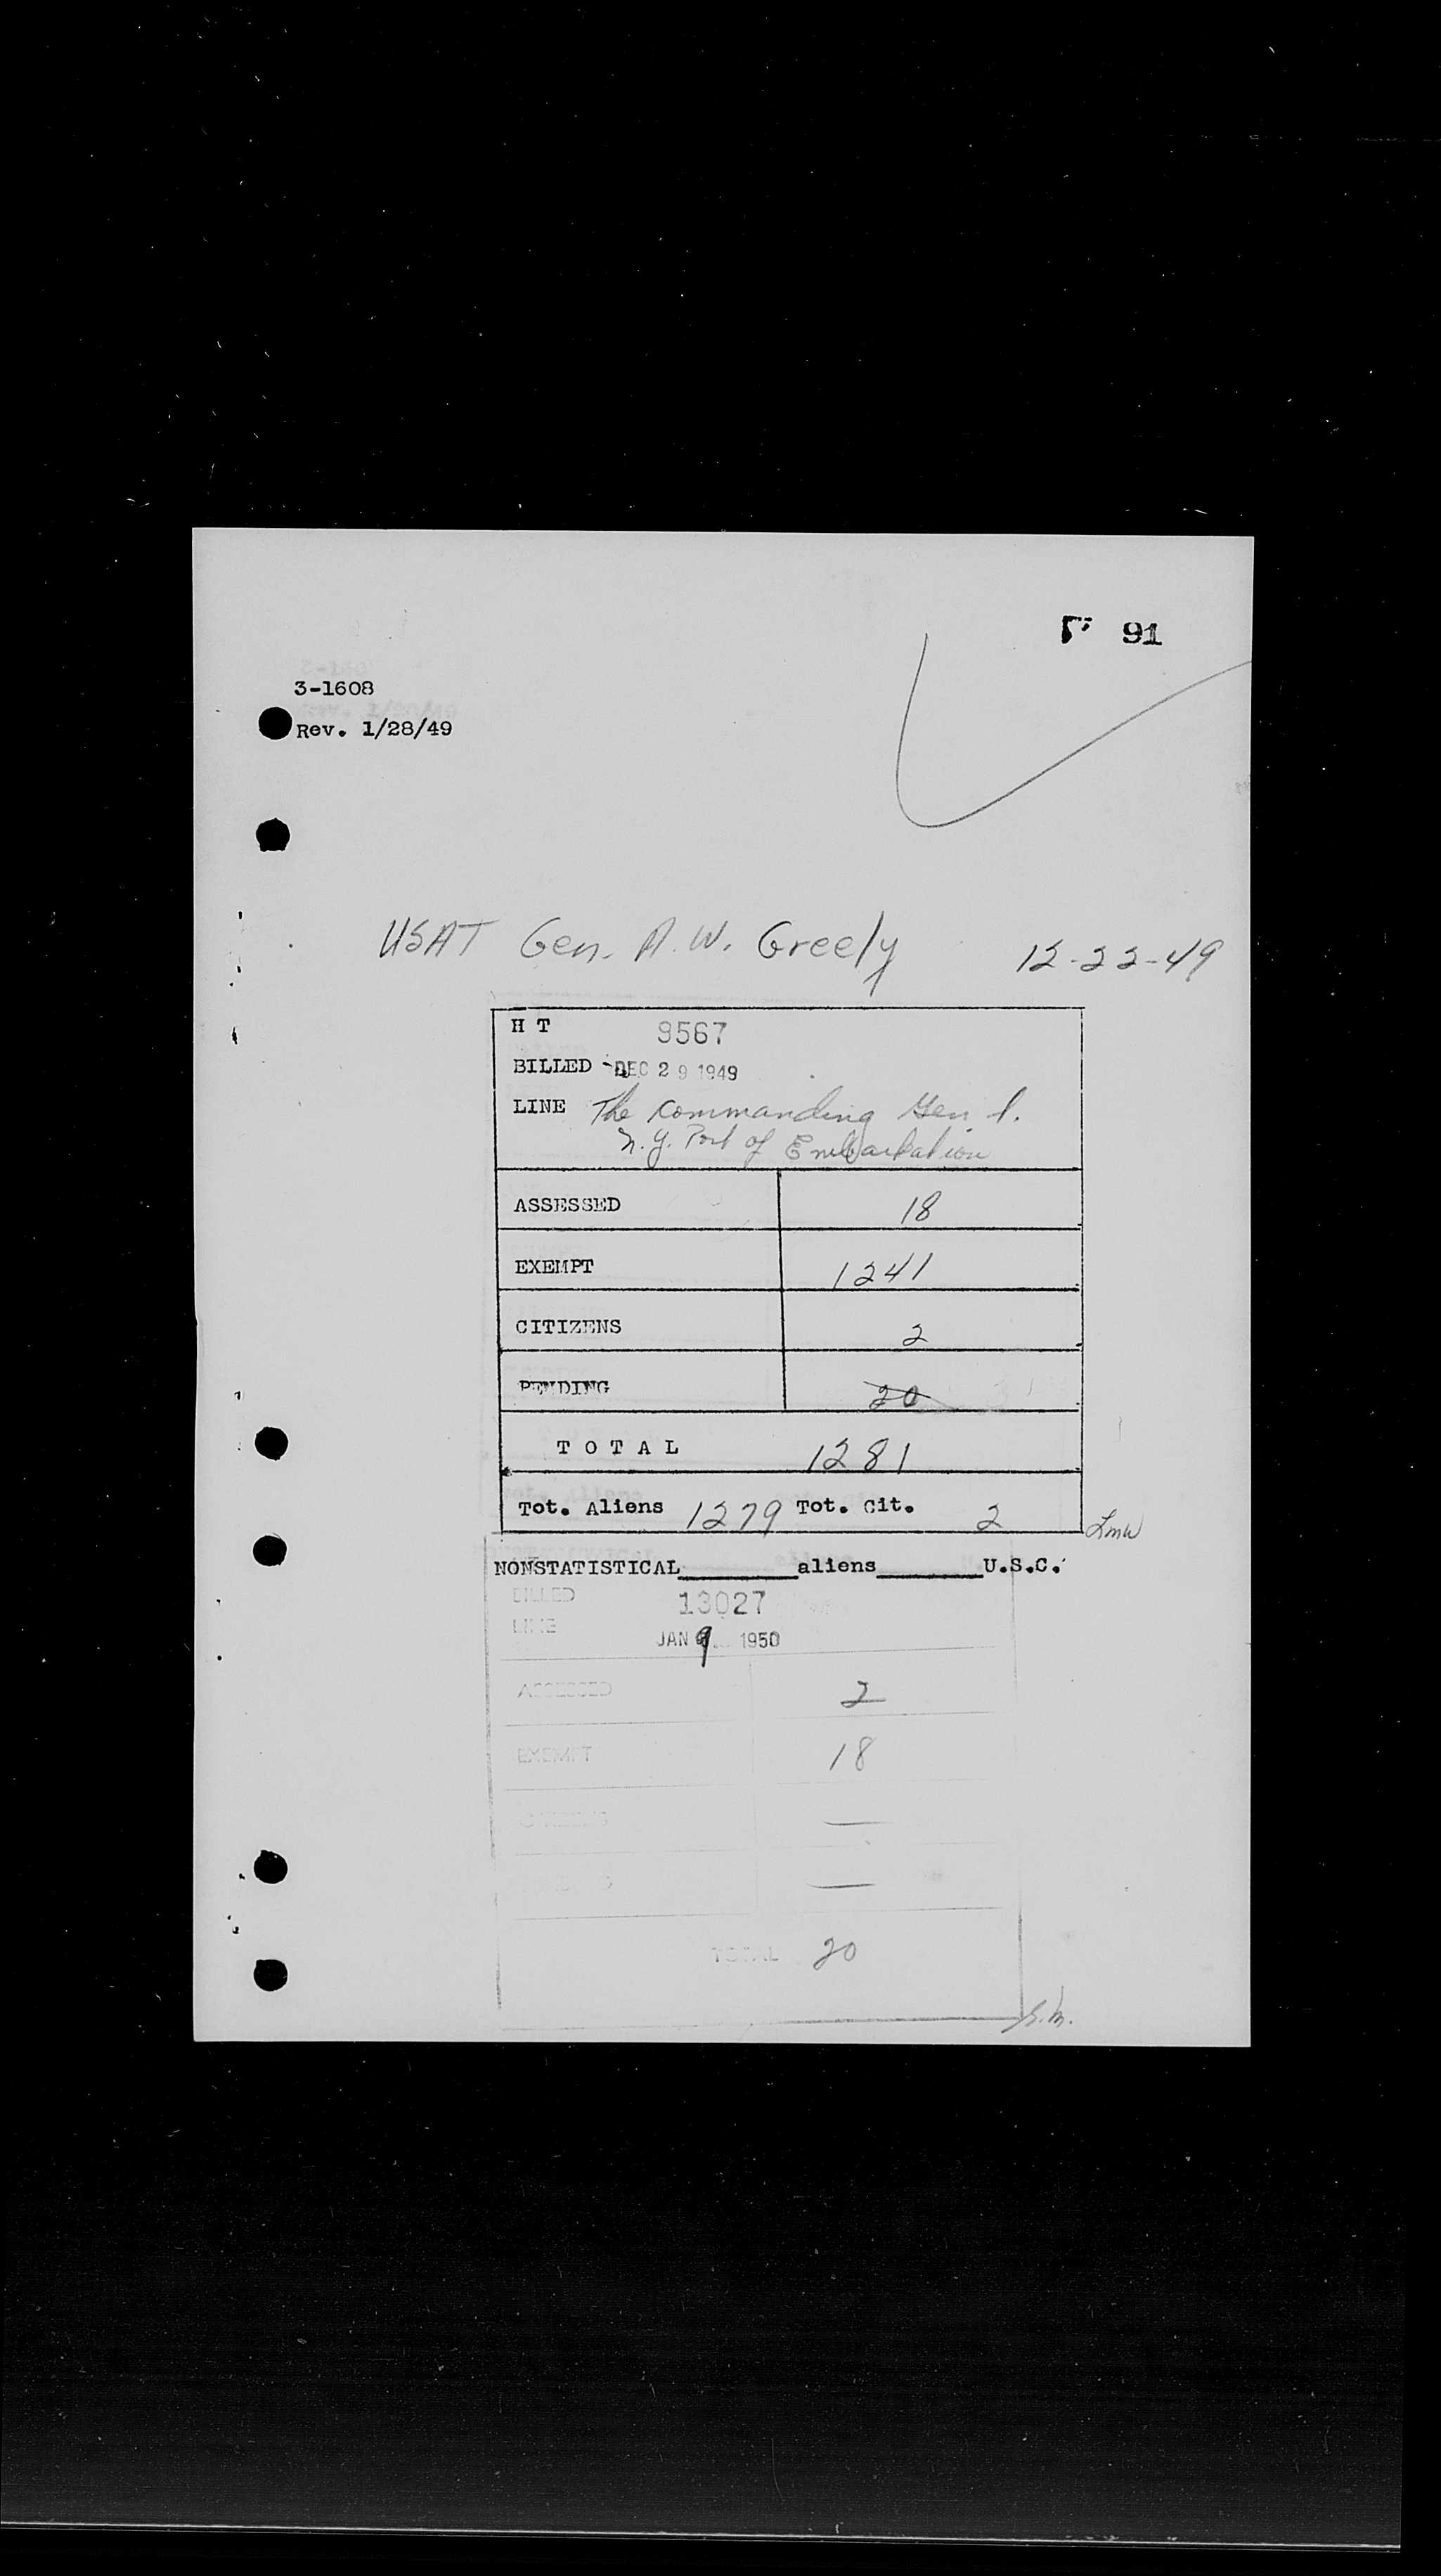 91
3-1608
Rev. 1/28/49
USAT Gen. A. W. Greely 12-22-49
H T 9567
BILLED DEC 29 1949
LINE The Commanding Gen'l.
N.Y. Port of Embarkation
ASSESSED 18
EXEMPT 1241
CITIZENS 2
PENDING 20
TOTAL 1281
Tot. Aliens 1279 Tot. Cit. 2
Lmw
NONSTATISTICAL________aliens________U.S.C.
BILLED 13027
LINE
JAN 9 1950
ASSESSED 2
EXEMPT 18
CITIZENS —
PENDING —
TOTAL 20